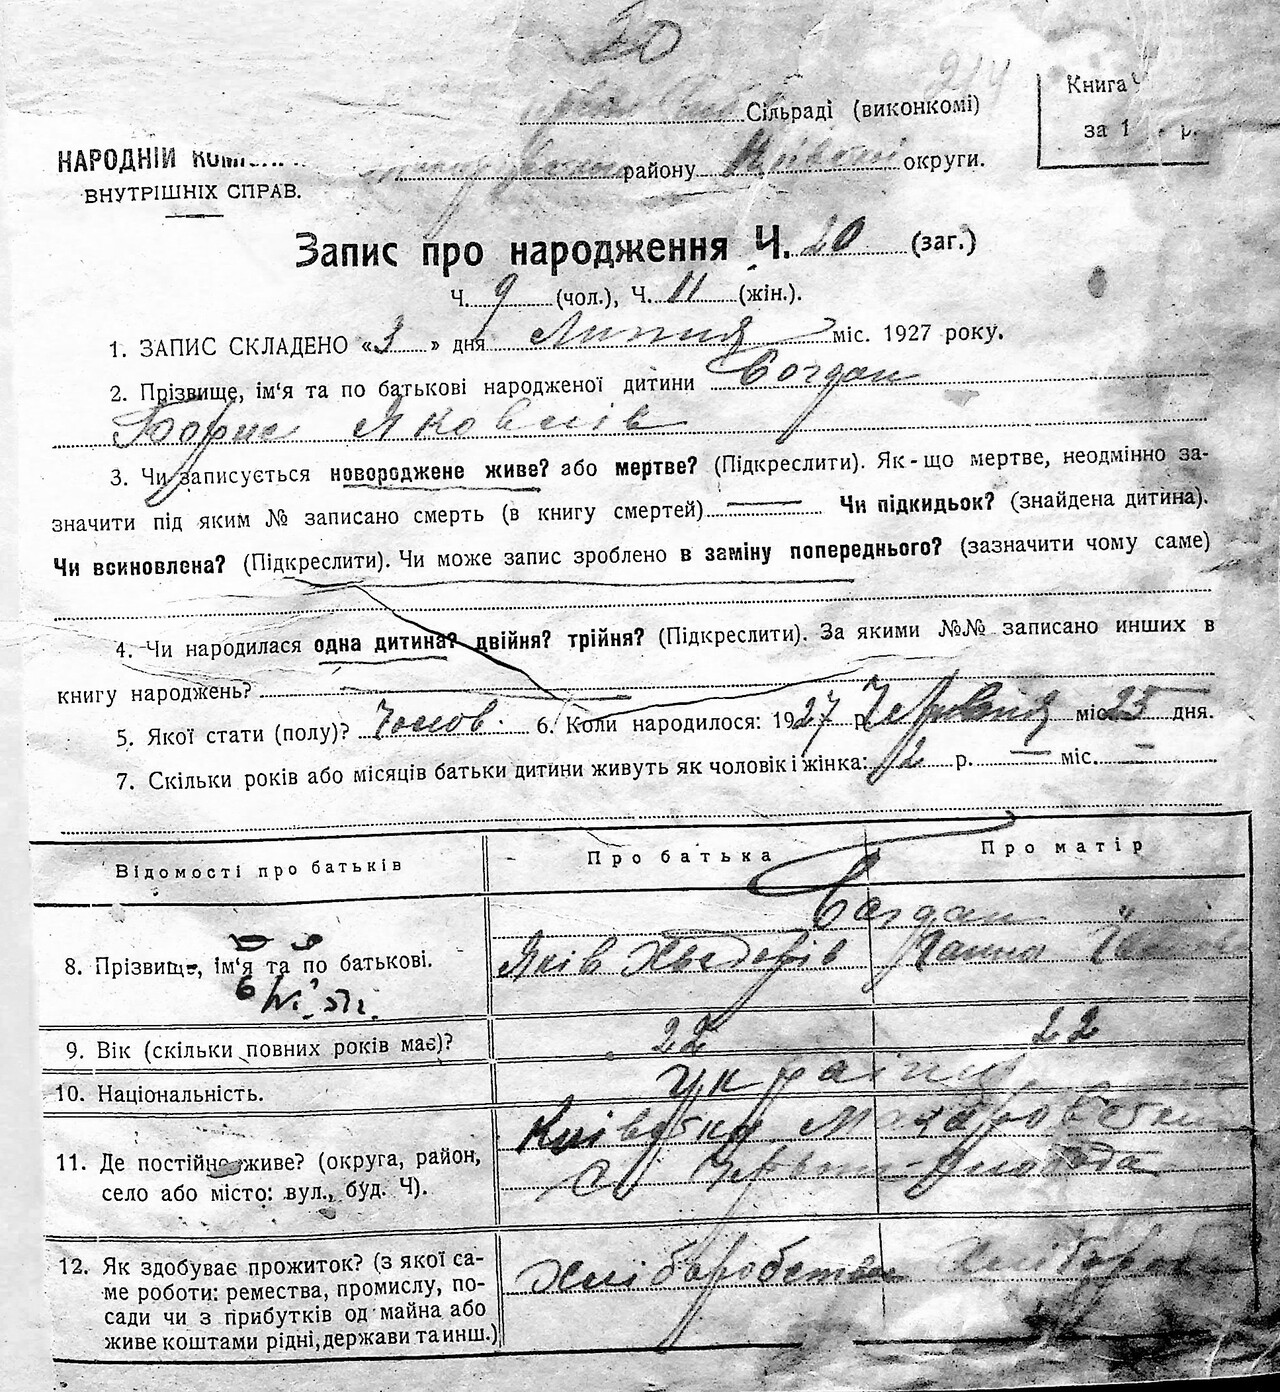 20
214
Сільраді (виконкомі)
Книга
за 1 р.
НАРОДНІЙ
району Київської округи.
ВНУТРІШНІХ СПРАВ.
Запис про народження Ч. 20 (заг.)
Ч. 9 (чол.), Ч. 11 (жін.).
1. ЗАПИС СКЛАДЕНО «3» дня Липня міс. 1927 року.
2. Прізвище, ім‘я та по батькові народженої дитини Богдан
Борис Яковлів
3. Чи записується новороджене живе? або мертве? (Підкреслити). Як-що мертве, неодмінно за-
значити під яким № записано смерть (в книгу смертей) Чи підкидьок? (знайдена дитина).
Чи всиновлена? (Підкреслити). Чи може запис зроблено в заміну попереднього? (зазначити чому саме)
4. Чи народилася одна дитина? двійня? трійня? (Підкреслити). За якими №№ записано инших в
книгу народжень?
5. Якої стати (полу)? Чолов. 6. Коли народилося: 1927 р. Червня міс. 25 дня.
7. Скільки років або місяців батьки дитини живуть як чоловік і жінка: 2 р. — міс. —
Відомості про батьків
Про батька
Про матір
Богдан
8. Прізвище, ім‘я та по батькові.
Яків Хведорів
Ганна
9. Вік (скільки повних років має)?
22
22
10. Національність.
Українці
11. Де постійно живе? (округа, район,
село або місто: вул., буд. Ч).
Київська Макарівський
с.
12. Як здобуває прожиток? (з якої са-
ме роботи: ремества, промислу, по-
сади чи з прибутків од майна або
живе коштами рідні, держави та инш.)
Хліборобство
Хлібороб